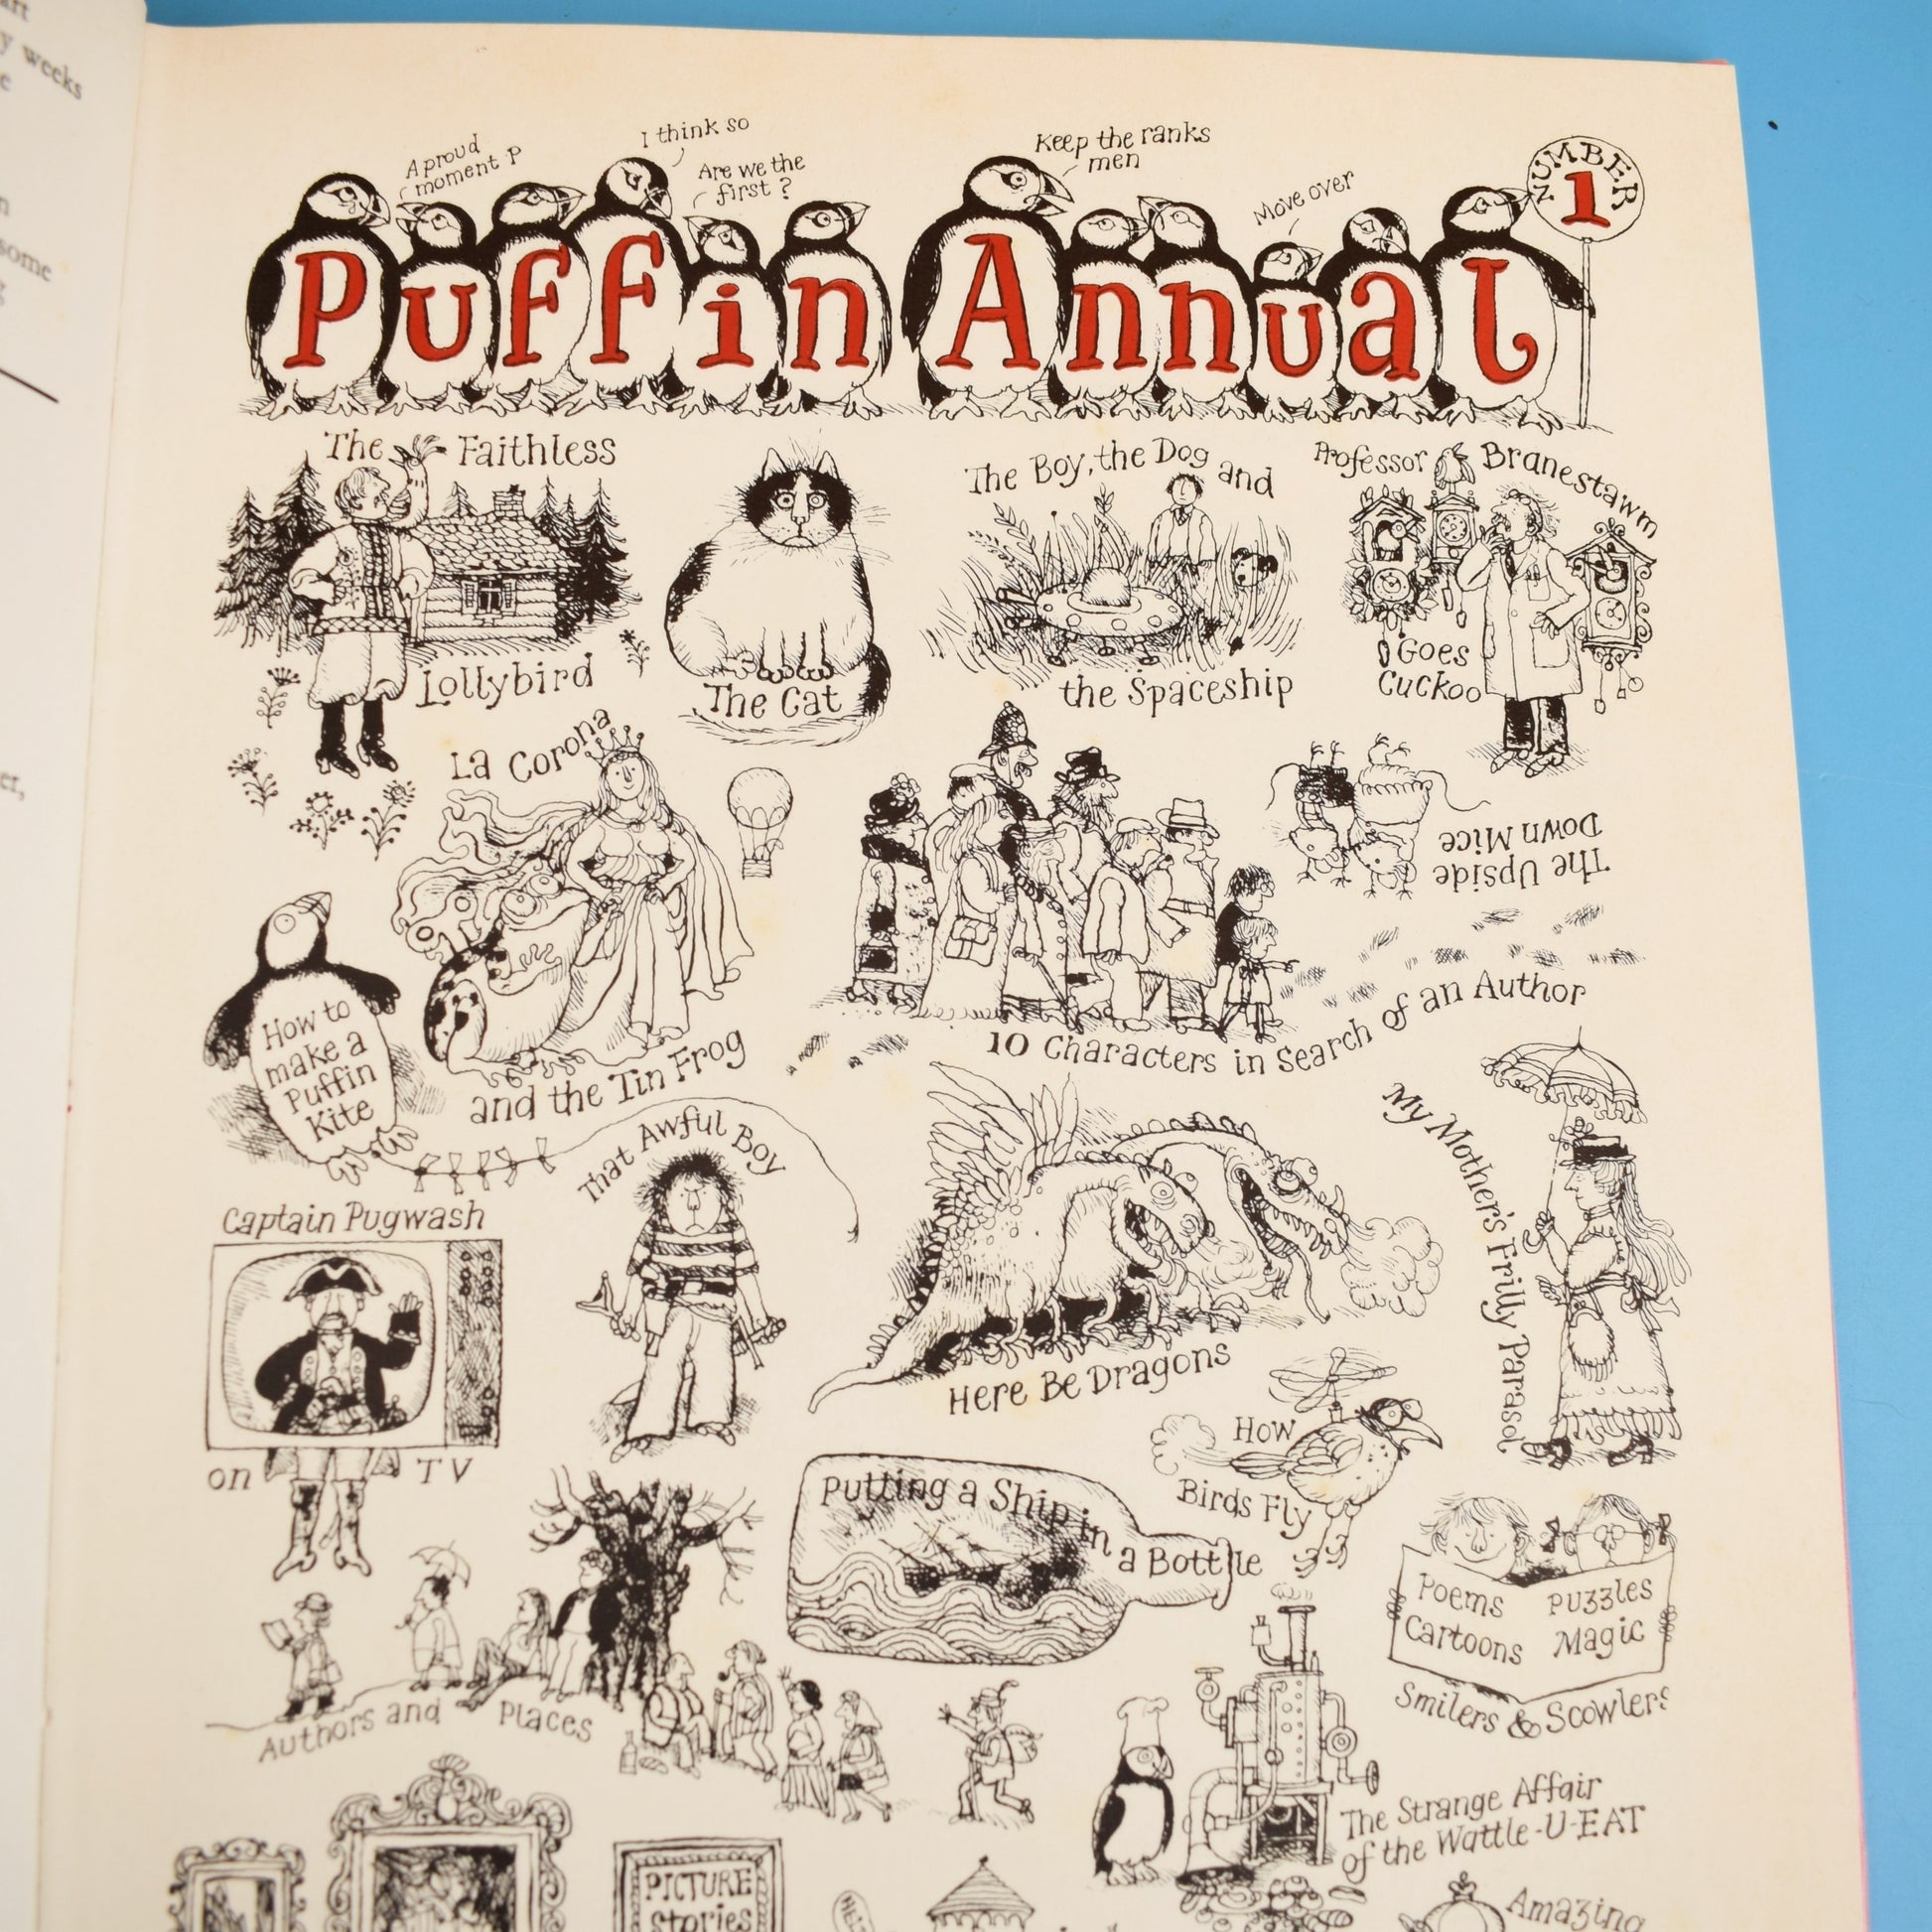 art
y weeks
some
er,
A proud
moment P
I think so
Are we the
first ?
Keep the ranks
men
Move over
NUMBER
1
Puffin Annual
The Faithless
Lollybird
The Cat
The Boy, the Dog and
the Spaceship
Professor Branestawm
Goes
Cuckoo
La Corona
and the Tin Frog
The Upside
Down Mice
10 Characters in Search of an Author
How to
make a
Puffin
Kite
That Awful Boy
My Mother's Frilly Parasol
Captain Pugwash
on TV
Here Be Dragons
How
Birds Fly
Putting a Ship in a Bottle
Poems Puzzles
Cartoons Magic
Smilers & Scowlers
Authors and Places
The Strange Affair
of the Wattle-U-EAT
PICTURE
stories
Amazing